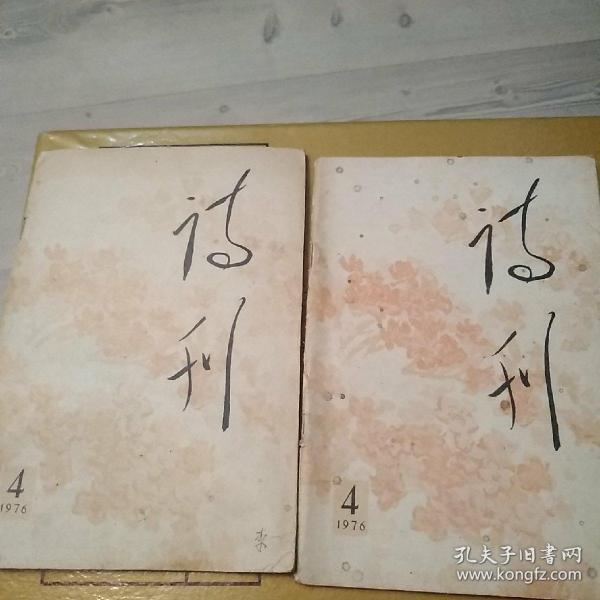 诗刊
4
1976
李
诗刊
4
1976
孔夫子旧书网
www.kongfz.com